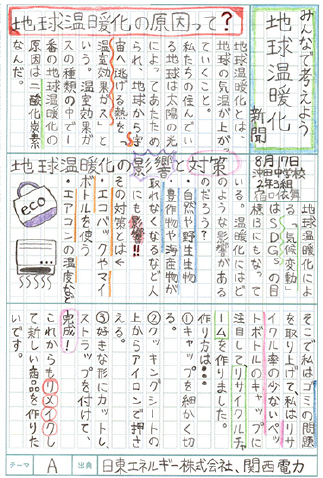 みんなで考えよう
地球温暖化
新聞
8月17日
沖田中学校
2年3組
地球温暖化の原因って？
地球温暖化とは、
地球の気温が上が
っていくこと。
私たちの住んでい
る地球は太陽の光
によってあたため
られ、地球から宇
宙へ逃げる熱を「
温室効果ガス」と
いう。温室効果ガ
スの種類の中で一
番の地球温暖化の
原因は二酸化炭素
なんだ。
地球温暖化の影響と対策
地球温暖化によ
る「気候変動」
はSDGsの目
標13にもなって
いる。温暖化には
どのような影響がある
のだろう？
自然や野生生物
農作物や海産物が
取れなくなるなど人
にも影響!!
その対策とは←
・エコバックやマイ
ボトルを使う
・エアコンの温度など
eco
そこで私はゴミの問題
を取り上げて、私はリサ
イクル率の少ないペッ
トボトルのキャップに
注目してリサイクルチャ
ームを作りました。
作り方は…
①キャップを細かく切
る。
②クッキングシートの
上からアイロンで押さ
える。
③好きな形にカットし、
ストラップを付けて、
完成！
これからもリメイクし
て新しい商品を作りた
いです。
テーマ A 出典 日東エネルギー株式会社、関西電力